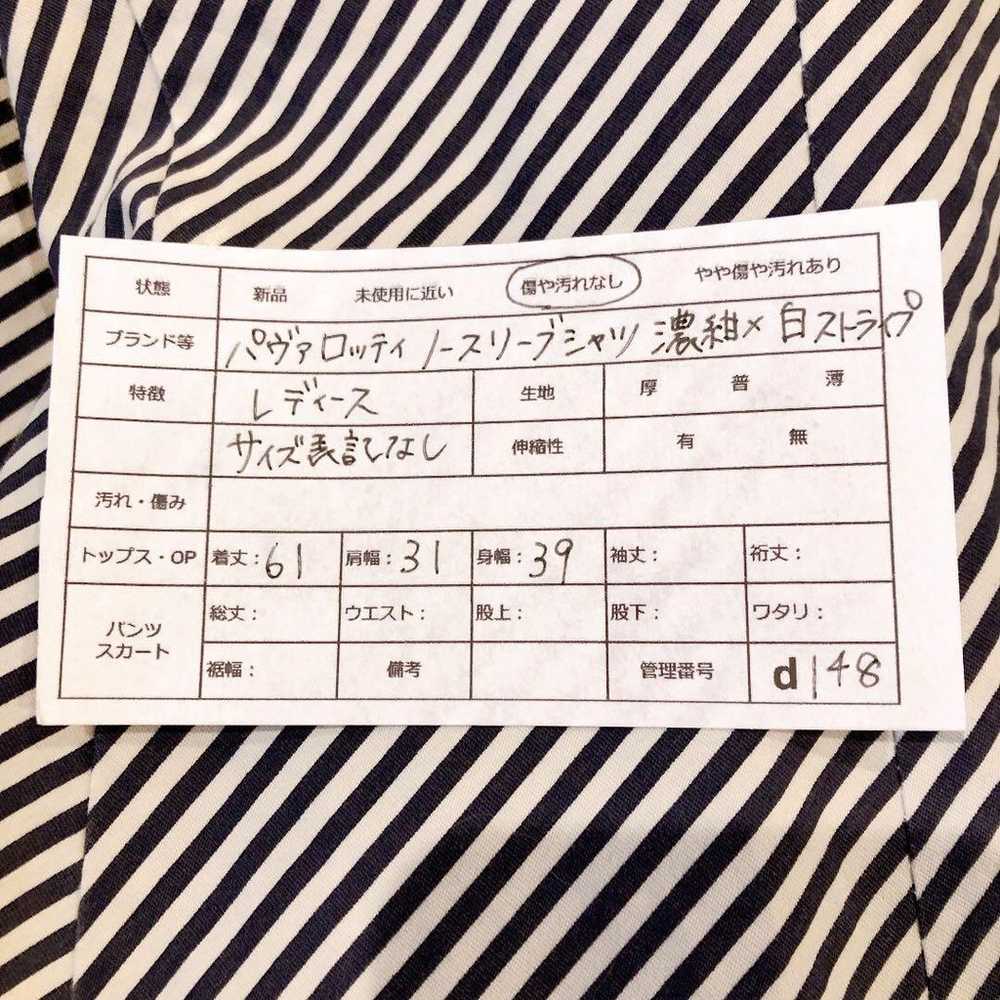 状態 新品 未使用に近い 傷や汚れなし やや傷や汚れあり
ブランド等 パヴァロッティ ノースリーブシャツ 濃紺×白ストライプ
特徴 レディース 生地 厚 普 薄
サイズ表記なし 伸縮性 有 無
汚れ・傷み
トップス・OP 着丈：61 肩幅：31 身幅：39 袖丈： 裄丈：
パンツ スカート 総丈： ウエスト： 股上： 股下： ワタリ：
裾幅： 備考 管理番号 d148